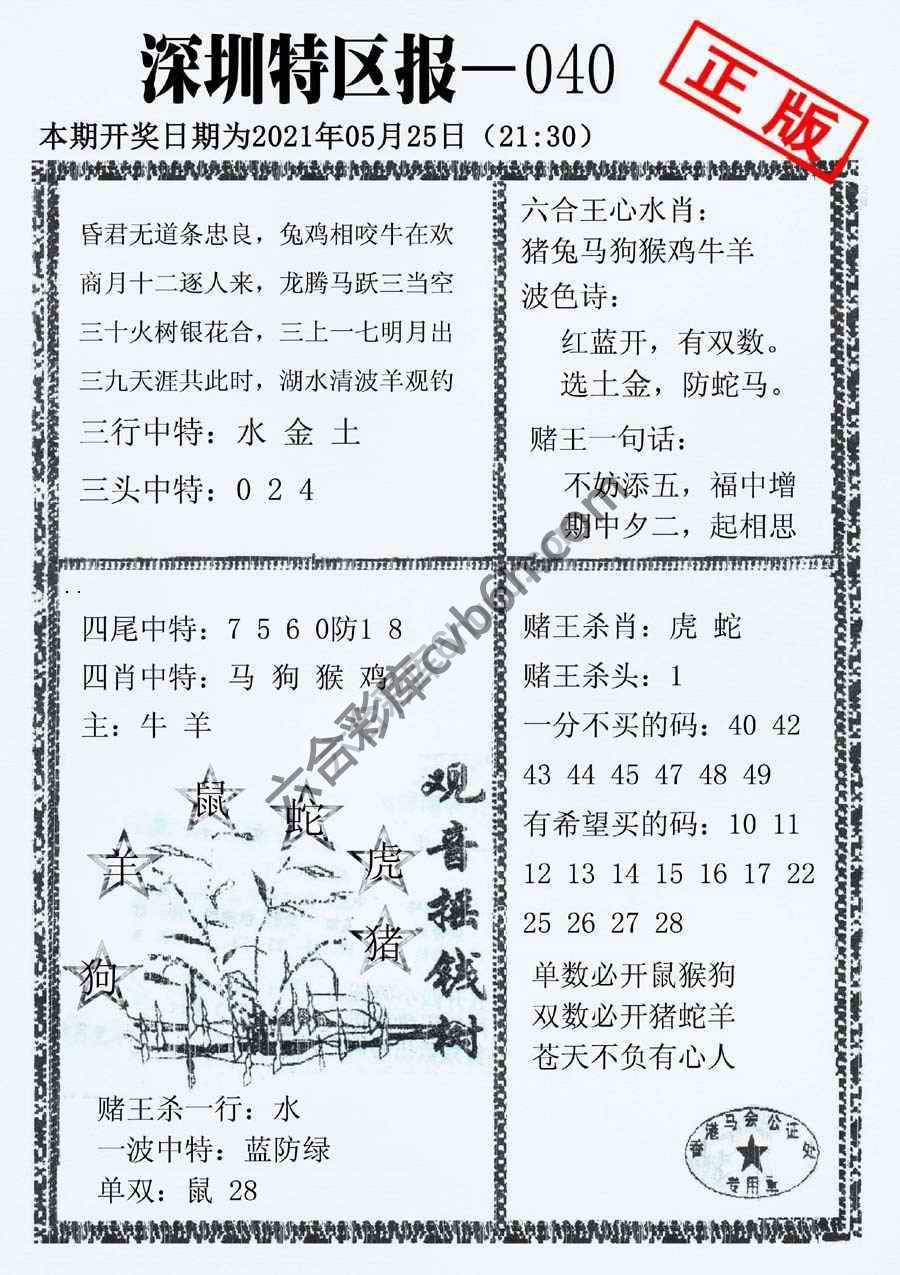 深圳特区报—040
正版
本期开奖日期为2021年05月25日（21:30）
昏君无道条忠良，兔鸡相咬牛在欢
商月十二逐人来，龙腾马跃三当空
三十火树银花合，三上一七明月出
三九天涯共此时，湖水清波羊观钓
三行中特：水 金 土
三头中特：0 2 4
六合王心水肖：
猪兔马狗猴鸡牛羊
波色诗：
红蓝开，有双数。
选土金，防蛇马。
赌王一句话：
不妨添五，福中增
期中夕二，起相思
四尾中特：7 5 6 0防1 8
四肖中特：马 狗 猴 鸡
主：牛 羊
鼠
蛇
羊
虎
猪
狗
观音摇钱树
赌王杀一行：水
一波中特：蓝防绿
单双：鼠 28
赌王杀肖：虎 蛇
赌王杀头：1
一分不买的码：40 42
43 44 45 47 48 49
有希望买的码：10 11
12 13 14 15 16 17 22
25 26 27 28
单数必开鼠猴狗
双数必开猪蛇羊
苍天不负有心人
香港马会公证处
专用章
六合彩库cvb6h.com